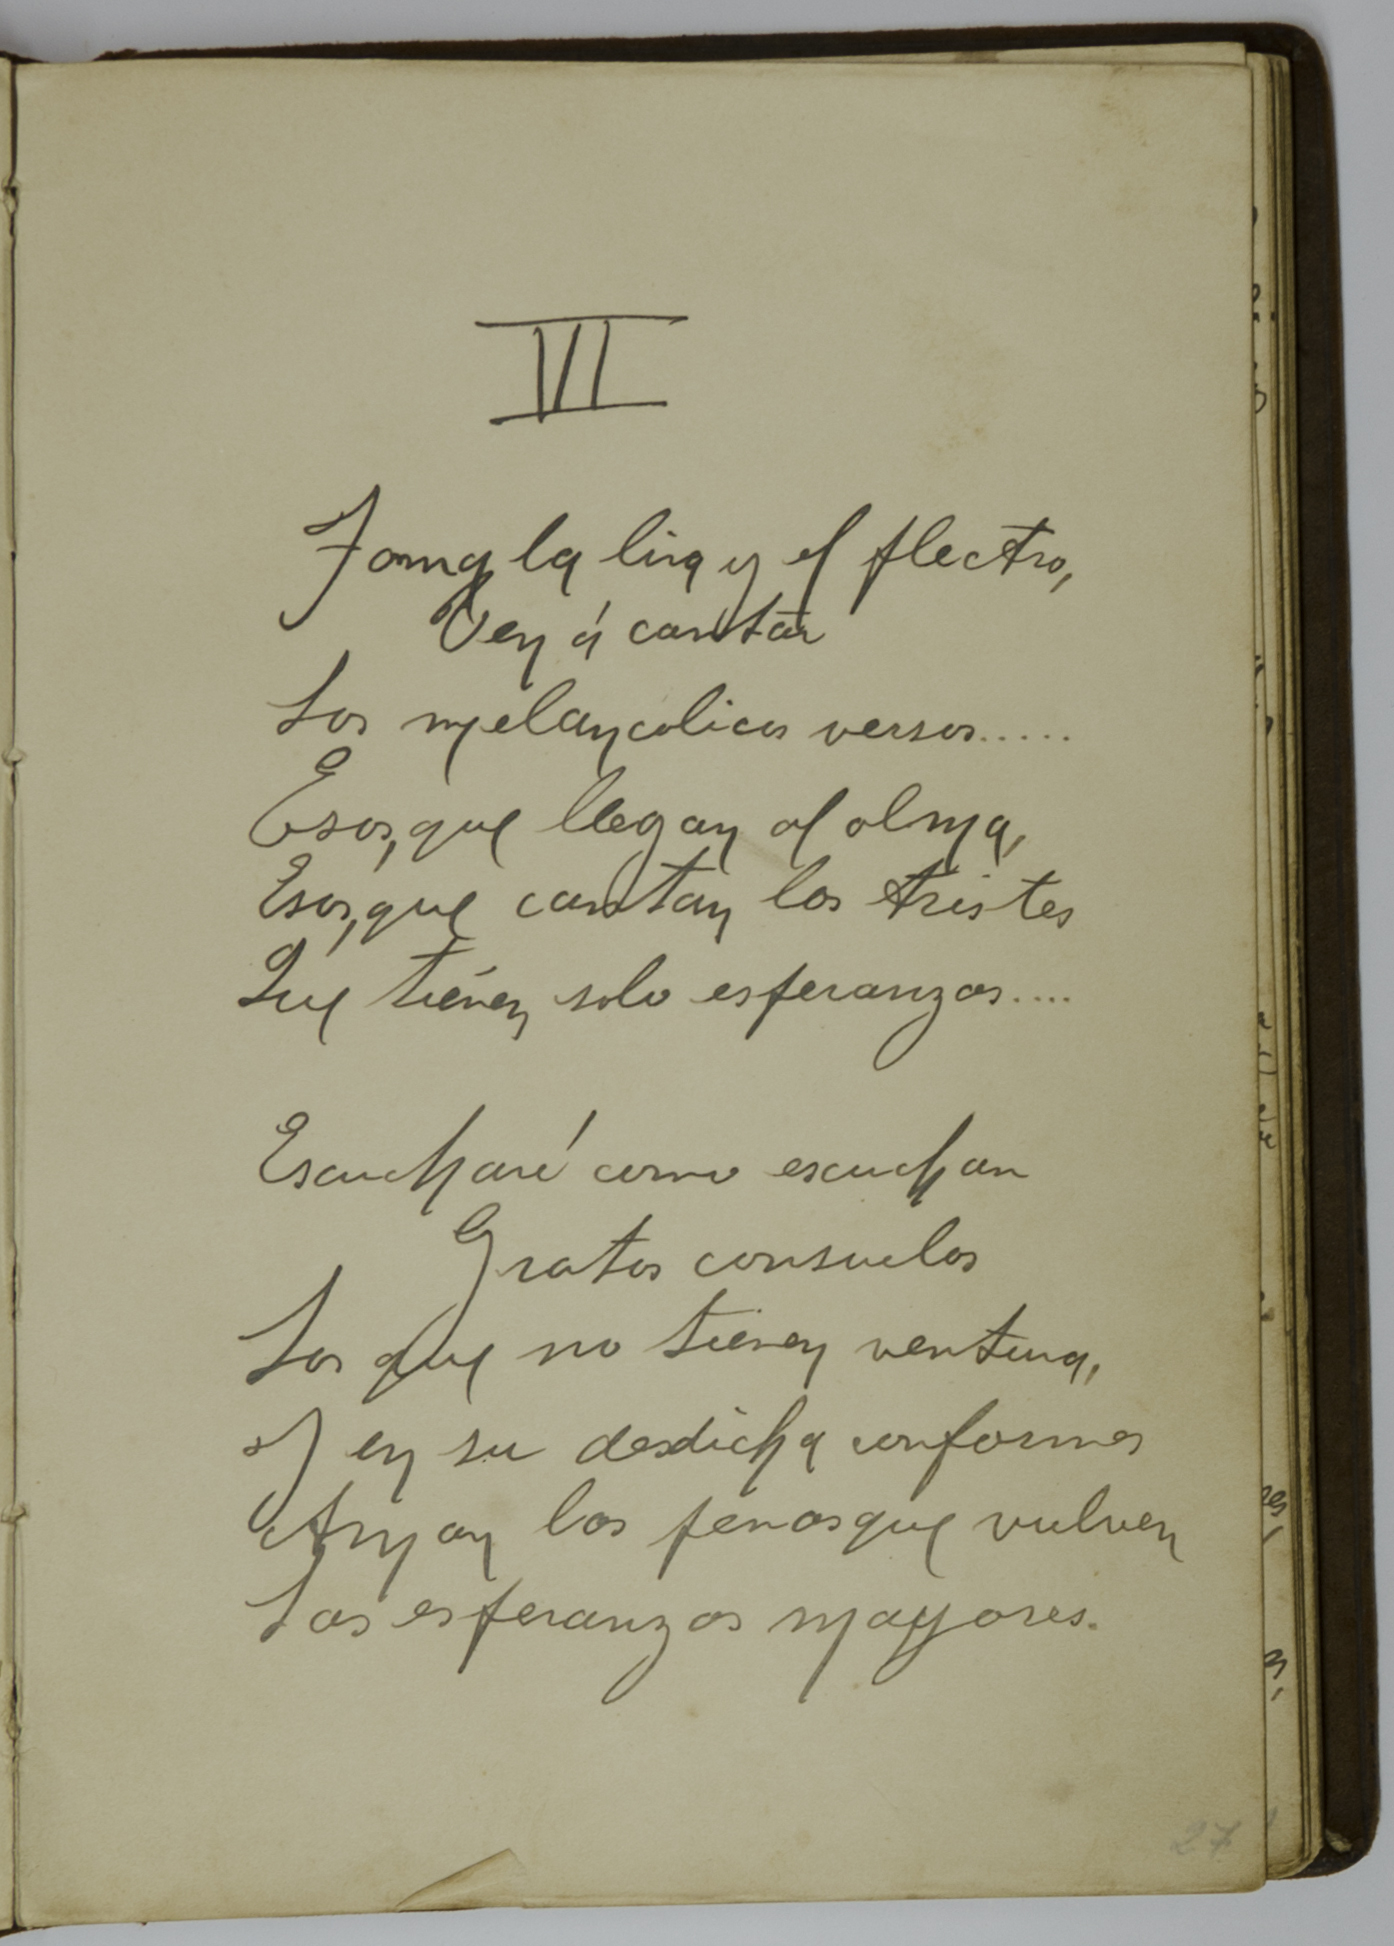 VI
Toma la lira y el plectro,
Ven á cantar
Los melancolicos versos.....
Esos, que llegan al alma,
Esos, que cantan los tristes
Que tiénen solo esperanzas....
Escucharé como escuchan
Gratos consuelos
Los que no tienen ventura,
Y en su desdicha conformes
Aman las penas que vulven
Las esperanzas mayores.
27